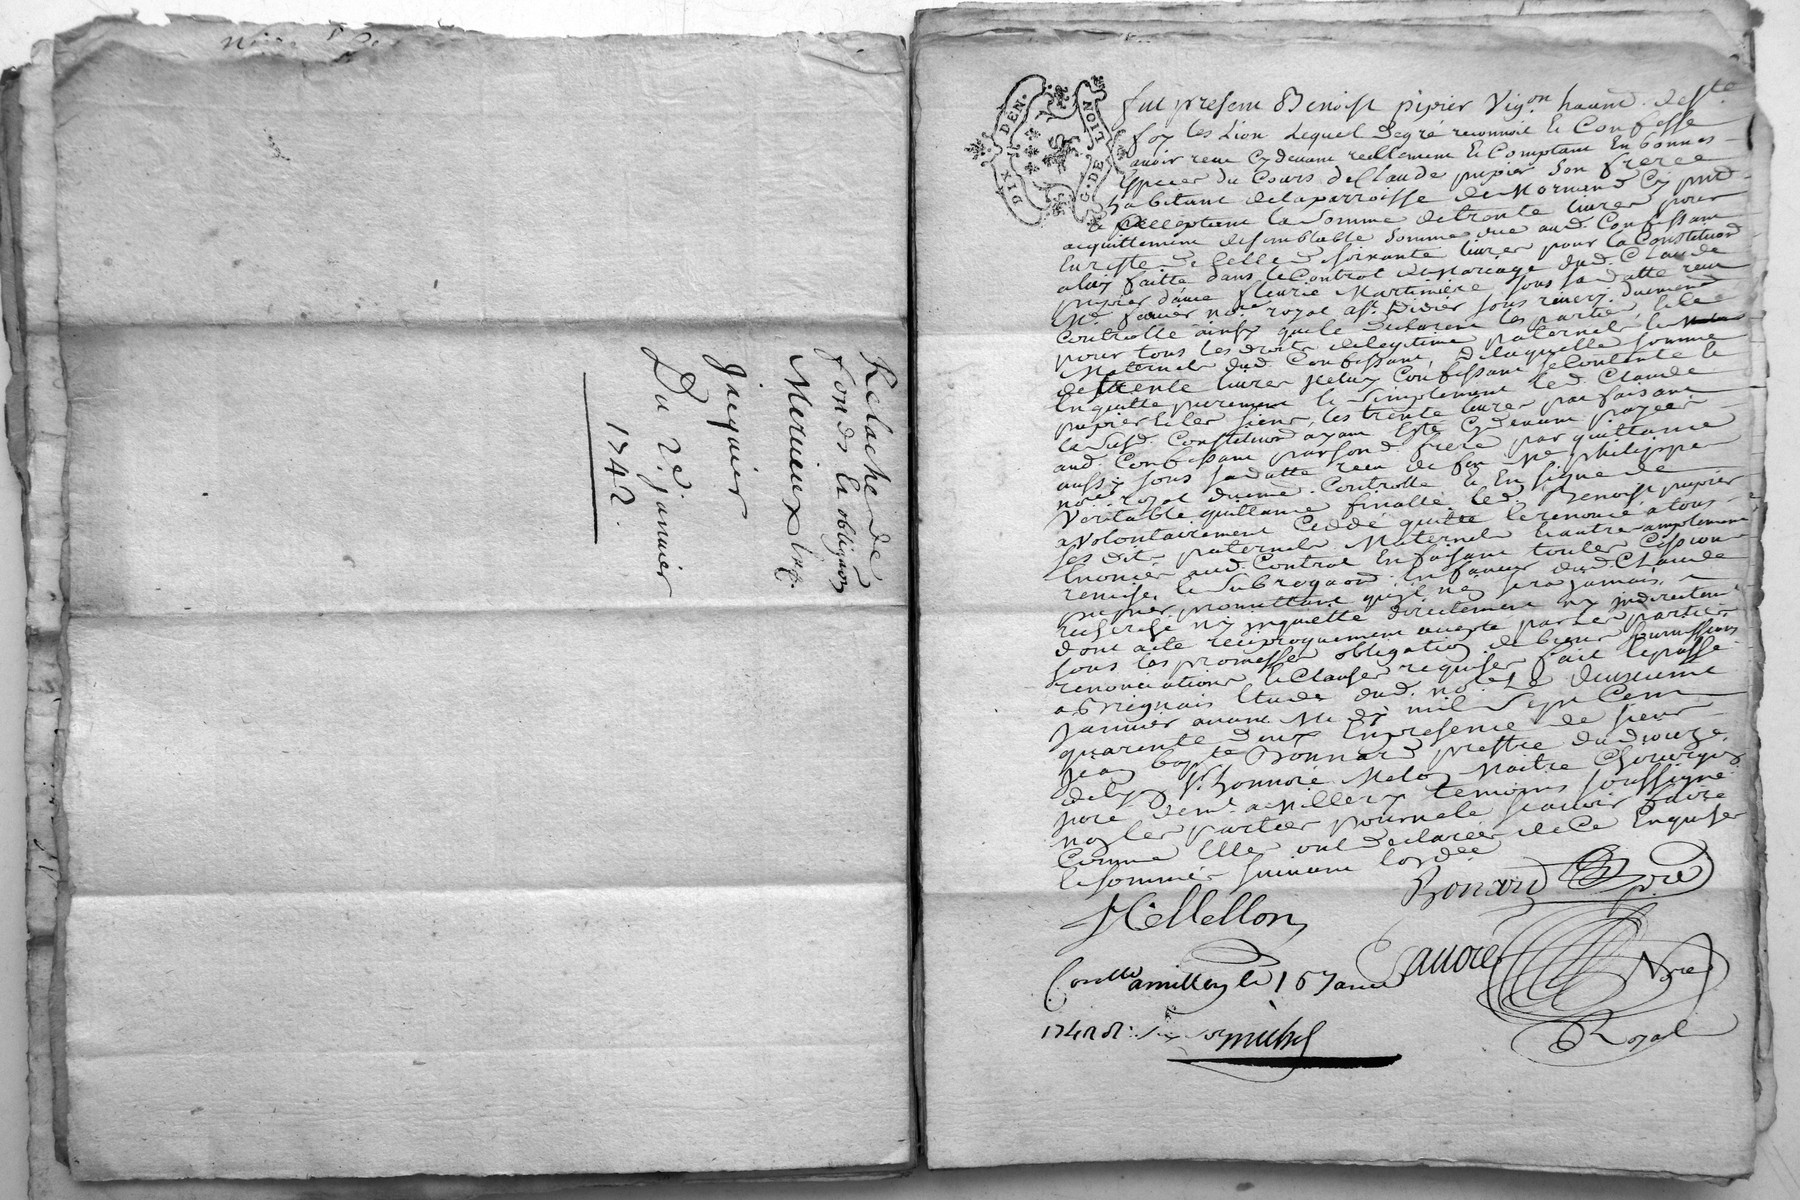 Relache de
fonds & obligaon
Merieux
Jacquier
Du 2e. janvier
1742.
DIX DEN.
G. DE LION
fut present Benoist pipier Vigon habnt. de ste
foy les Lion Lequel de gré reconnoit & Confesse
avoir receu cy devant reellement & Comptant En bonnes
Especes du Cours de Claude pipier son frere
habitant de la parroisse de Mornand Cy pnt
& acceptant la somme de trente livres pour
acquittement de semblable somme due aud. Confessant
En reste de Celle de soixante livres pour la Constitution
a luy faitte dans le Contrat de Mariage dud. Claude
pipier d'avec fleurie Martiniere sous sa datte receu
Me. notre royal a St. Didier sous duement
Controllé ainsy que le declarent les parties &
pour tous les droits de legitime paternels &
Maternels dud. Confessant, de laquelle somme
de trente livres Confessant se Contente &
En quitte purement & simplement led. Claude
pipier & les siens, les trente livres parfaisant
la susd. Constitution ayant Esté Cy devant payées
aud. Confessant par sond. frere par quittance
aussy sous sa datte receu de feu Me philippe
nore royal duement Controllé & En signe de
Veritable quittance finalle led. Benoist pipier
a Volontairement Ceddé quitté & renoncé a tous
ses dits paternels Maternels & autres amplement
Enoncés aud. Contrat En faisant toutes Cessions
remises & subrogaons. En faveur dud. Claude
pipier promettant qu'il n'en sera jamais
recherché ny inquietté directement ny indirectement
dont acte reciproquement par les parties
sous les promesses obligation de biens soumissions
renonciations & Clauses requises fait & passé
a Brignais Etude dud. nore Le deuxieme
Janvier avant Midy mil sept Cent
quarente deux En presence de sieur
Jean bapte Bonnard prestre du dioceze
de Lyon Sr. honnoré Melon Maitre Chirurgien
juré demt. a Millery temoins soussignés
non les parties pour ne le scavoir faire
Comme Elles ont declarées de Ce Enquises
& sommés suivant l'ordce
Bonnard ptre
H Mellon
Contllé a millery le 16 Janer
Nore
Royal
michel